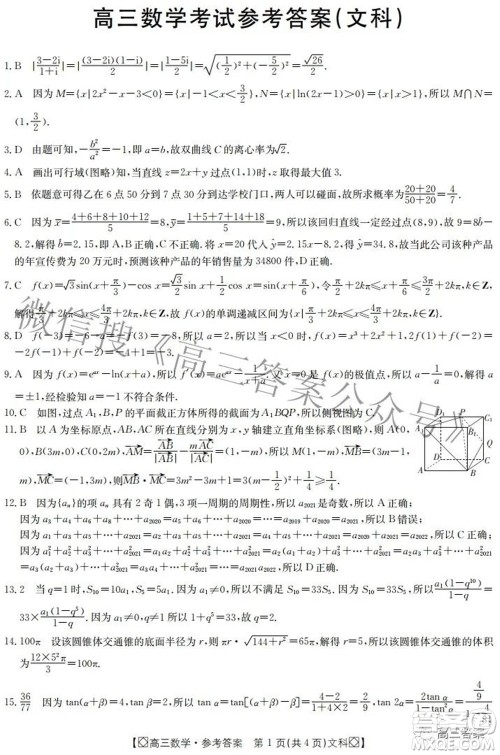 高三数学考试参考答案(文科)
1. B |(3-2i)/(1+i)|=|(3-2i)(1-i)/2|=|(1-5i)/2|=√((1/2)²+(-5/2)²)=√26/2.
2. A 因为M={x|2x²-x-3<0}={x|-1<x<3/2},N={x|ln(2x-1)>0}={x|x>1},所以M∩N=
(1,3/2).
3. D 由题可知,-b²/a²=-1,即a=b,故双曲线C的离心率为√2.
4. A 画出可行域(图略)知,当直线z=2x+y过点(1,1)时,z取得最大值3.
5. B 依题意可得乙在6点50分到7点30分到达学校门口,两人可以碰面,故所求概率为(20+20)/(50+20)=4/7.
6. C 因为x̄=(4+6+8+10+12)/5=8,ȳ=(1+5+7+14+18)/5=9,所以该回归直线一定经过点(8,9),故9=8b-
8.2,解得b=2.15,即A,B正确,C不正确.将x=20代入ŷ=2.15x-8.2,得ŷ=34.8,故当此公司该种产品
的年宣传费为20万元时,预测该种产品的年销售量为34800件,D正确.
7. C f(x)=√3sin(x+π/3)-cos x=√3/2 sin x+1/2 cos x=sin(x+π/6),令π/2+2kπ≤x+π/6≤3π/2+2kπ,k∈Z,
解得π/3+2kπ≤x≤4π/3+2kπ,k∈Z,故f(x)的单调递减区间为[π/3+2kπ,4π/3+2kπ],k∈Z.
8. D f(-3)=-6 =-f(3)=-8,所以a=2,所以当x<0时,f(x)=x³+2x²+1,f(2)+f(0)=
-2f(-1)-f(-2)=-4+1=-3.
9. A 因为f(x)=e^{ax}-ln(x+a),所以f′(x)=ae^{ax}-1/(x+a).又x=0是f(x)的极值点,所以a-1/a=0,解得a
=±1,经检验知a=-1不符合条件.
10. C 如图,过点A₁,B,P的平面截正方体所得的截面为A₁BQP,所以侧视图为C.
11. B 以A为坐标原点,AB,AC所在直线分别为x,y轴建立直角坐标系(图略),则A(0,
0),B(3m,0),C(0,2m),AM=AB/|AB|-mAC/|AC|=(1,-m),所以M(1,-m),MB=(3m-1,
m),MC=(-1,3m),则MB·MC=3m²-3m+1=3(m-1/2)²+1/4≥1/4.
12. B 因为{aₙ}的项aₙ具有2奇1偶,3项一周期的周期性,所以a₂₀₂₁是奇数,所以A正确;
因为a₃+a₄+a₆+a₈+…+a₂₀₂₀=a₅+a₆+…+a₂₀₂₀=…=a₂₀₁₉+a₂₀₂₀=a₂₀₂₁,所以B错误;
因为a₁+a₃+a₅+…+a₂₀₂₁=a₂+a₃+a₅+…+a₂₀₂₁=a₄+a₅+…+a₂₀₂₁=…=a₂₀₂₀+a₂₀₂₁=a₂₀₂₂,所以C正确;
因为a₁²+a₂²+a₃²+…+a₂₀₂₁²=a₁a₂+a₂²+a₃²+…+a₂₀₂₁²=a₂(a₁+a₂)+a₃²+…+a₂₀₂₁²=a₂a₃+a₃²+…+a₂₀₂₁²
=a₃(a₂+a₃)+…+a₂₀₂₁²=…=a₂₀₂₁a₂₀₂₂,所以D正确.
13. 2 当q=1时,S₁₀=10a₁,S₅=5a₁.因为a₁≠0,所以不满足S₁₀=33S₅.因为S₁₀=33S₅,所以a₁(1-q¹⁰)/(1-q)=
33×a₁(1-q⁵)/(1-q).因为a₁≠0,所以1+q⁵=33,故q=2.
14. 100π 设该圆锥体交通锥的底面半径为r,则πr·√(144+r²)=65π,解得r=5,所以该圆锥体交通锥的体积
为12×5²π/3=100π.
15. 36/77 因为tan(α+β)=4,tan β=2,所以tan α=tan[(α+β)-β]=(4-2)/(1+4×2)=2/9,tan 2α=2tan α/(1-tan²α)=
【高三数学·参考答案 第1页(共4页)文科】
微信搜《高三答案公众号》